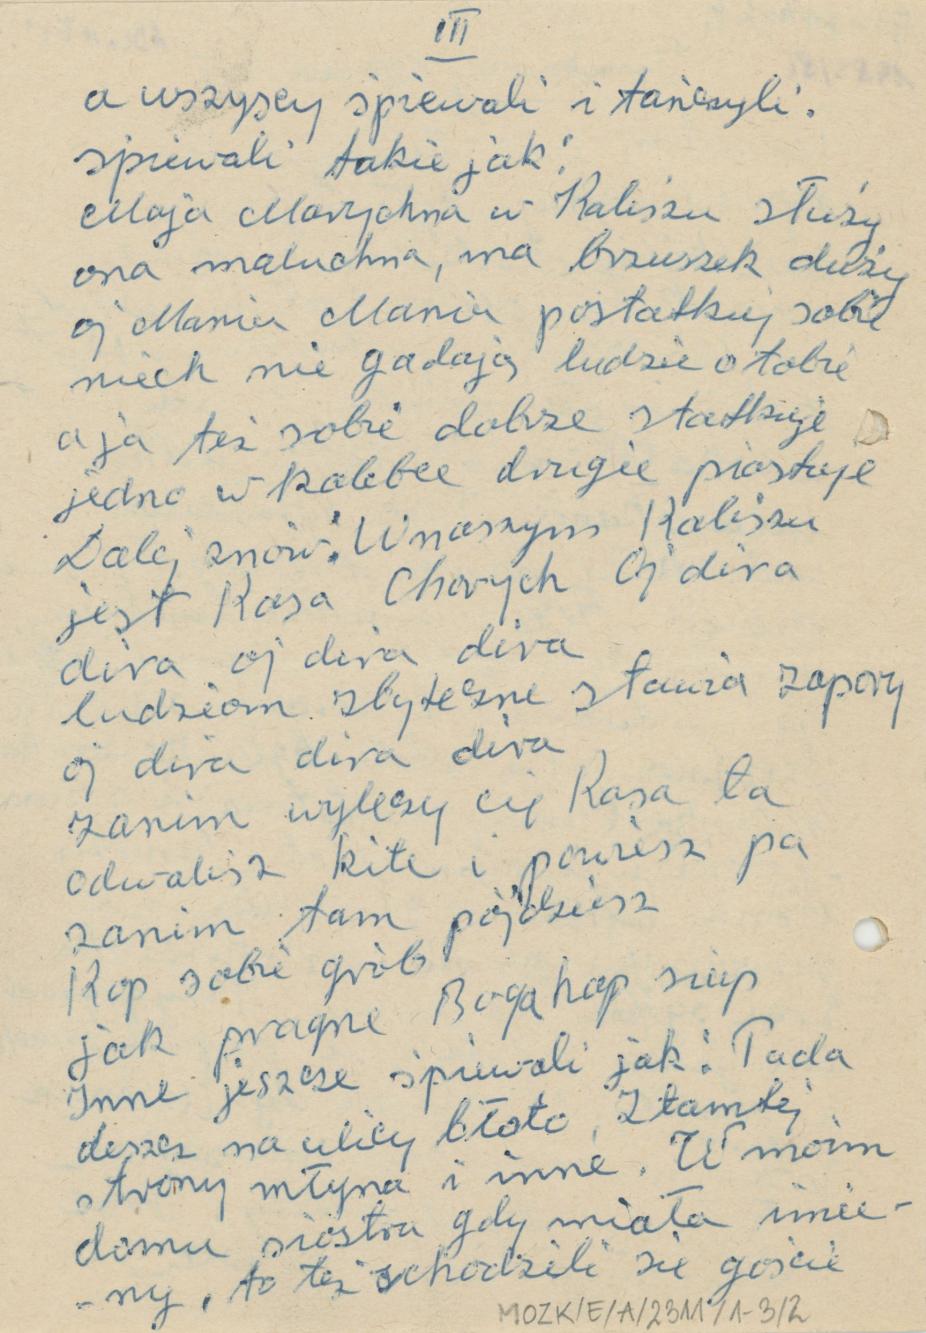 III
a wszyscy śpiewali i tańczyli.
śpiewali takie jak:
Moja Marychna w Kaliszu służy
ona maluchna, ma brzuszek duży
oj Maniu Maniu postatkuj sobie
niech nie gadają ludzie o tobie
a ja też sobie dobrze statkuje
jedno w kolebce drugie piastuje
Dalej znów: W naszym Kaliszu
jest Kasa Chorych Oj dira
dira oj dira dira
ludziom zbyteczne stawia zapory
oj dira dira dira
zanim wyleczy cię Kasa ta
odwalisz kite i powiesz pa
zanim tam pójdziesz
Kop sobie grób
jak pragne Boga hop siup
Inne jeszcze śpiewali jak: Pada
deszcz na ulicy błoto, Z tamtej
strony młyna i inne. W moim
domu siostra gdy miała imie-
-ny, to też schodzili się goście
MOZK/E/A/2311/1-3/2